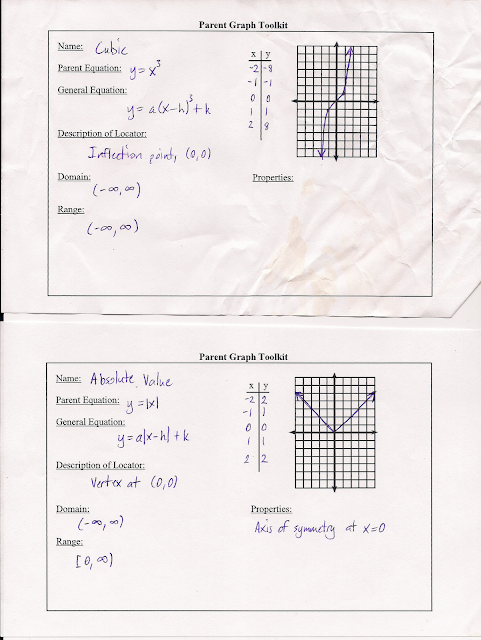 Parent Graph Toolkit
Name: Cubic
Parent Equation: y = x³
General Equation:
y = a(x-h)³ + k
Description of Locator:
Inflection point, (0,0)
Domain:
(-∞, ∞)
Range:
(-∞, ∞)
x | y
-2 | -8
-1 | -1
0 | 0
1 | 1
2 | 8
Properties:
Parent Graph Toolkit
Name: Absolute Value
Parent Equation: y = |x|
General Equation:
y = a|x-h| + k
Description of Locator:
Vertex at (0,0)
Domain:
(-∞, ∞)
Range:
[0, ∞)
x | y
-2 | 2
-1 | 1
0 | 0
1 | 1
2 | 2
Properties:
Axis of symmetry at x=0